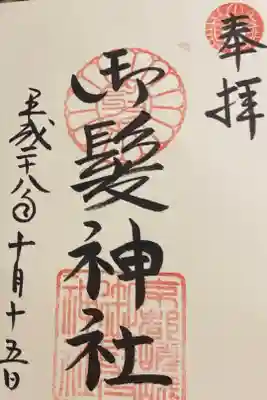 奉拝
御髪神社
平成二十八年十月十五日